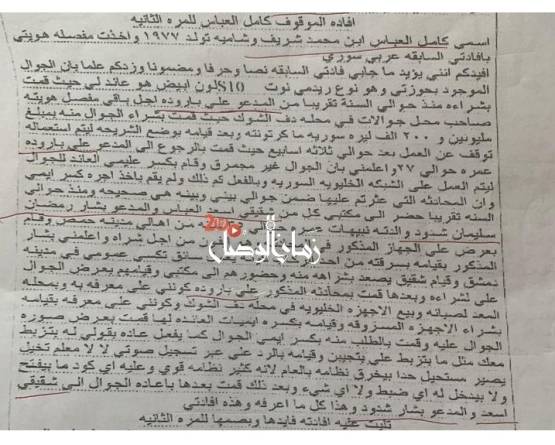 افاده الموقوف كامل العباس للمره الثانيه
اسمي كامل العباس ابن محمد شريف وشاميه تولد ١٩٧٧ واخذت مفصله هويتي
بافادتي السابقه عربي سوري
افيدكم انني يؤيد ما جابي فادتي السابقه نصا وحرفا ومضمونا وزدكم علما بان الجوال
الموجود بحوزتي وهو نوع ريدمي نوت S10 لون ابيض هو عائد لي حيث قمت
بشراءه منذ حوالي السنة تقريبا من المدعو علي باروده اجهل باقي مفصل هويته
صاحب محل جوالات في محله دف الشوك حيث قمت بشراء الجوال منه بمبلغ
مليونين و ٢٠٠ الف ليره سوريه ما كرتونته وبعد قيامه بوضع الشريحه ليتم استعماله
توقف عن العمل بعد حوالي ثلاثه اسابيع حيث قمت بالرجوع الى المدعو علي باروده
عمره حوالي ٢٧ واعلمني بان الجوال غير مجمرق وقام بكسر عليمي العائد للجوال
ليتم العمل على الشبكه الخليويه السوريه وبالفعل تم ذلك ولم يقم باخذ اجره كسر ايمي
وان المحادثه التي عثرتم عليها ضمن جوالي بيني وبينه هي صحيحه ومنذ حوالي
السنه تقريبا حضر الى مكتبي كل من شقيقي اسعد العباس والمدعو بشار رمضان
سليمان شدود والدته نبيهات من اهالي مدينه حمص وقام
بعرض علي الجهاز المذكور من اجل شراه واعلمني بشار
المذكور بقيامه بسرقته من احد سائق تكسي عمومي في مدينه
دمشق وقام شقيق يصعد بشراهه منه وحضور هم الى مكتبي وقيامهم بعرض الجوال
على لشراءه وبعدها قمت بمحادثه المذكور علي باروده كونني على معرفه به وبمحله
المعد لصيانه وبيع الاجهزه الخليويه في محله دف الشوك وكونني على معرفه بقيامه
بشراء الاجهزه المسروقه وقيامه بكسره ايميات العائده لها قمت بعرض صوره
الجوال عليه وقمت بالطلب منه بكسر ايمي الجوال كما يفعل عاده بقولي له يتزبط
معك مثل ما بتزبط علي بتجيبن وقيامه بالرد على عبر تسجيل صوتي لا لا معلم تخيل
يصير مستحيل حدا بيخرق نظامه بالعام لانه كثير نظامه قوي وعليه اي كود ما بيفتح
ولا بيدخل له اي ضبط ولا اي شيء وبعد ذلك قمت بعدها باعاده الجوال الى شقيقي
اسعد والمدعو بشار شدود وهذا كل ما اعرفه وهذه افادتي
تليت عليه افادته فايدها وبصمها للمره الثانيه
زمان الوصل